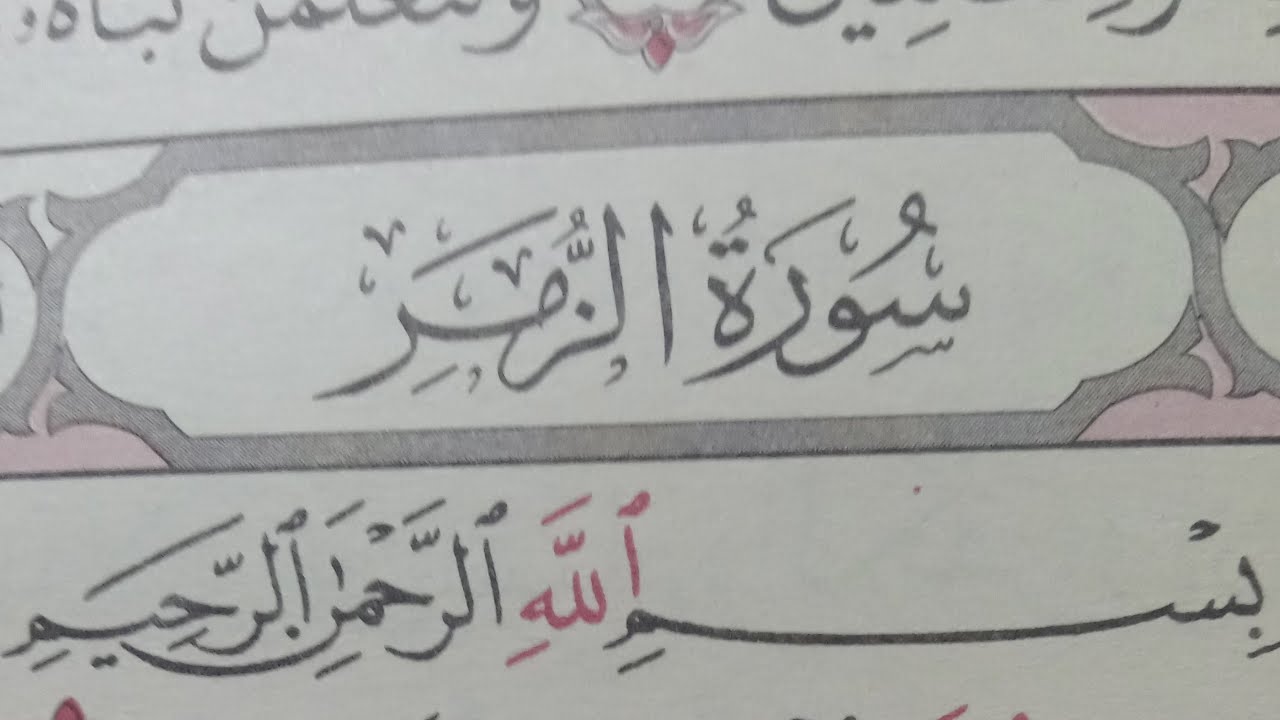 سُورَةُ الزُّمَرِ
بِسْمِ ٱللَّهِ ٱلرَّحْمَٰنِ ٱلرَّحِيمِ